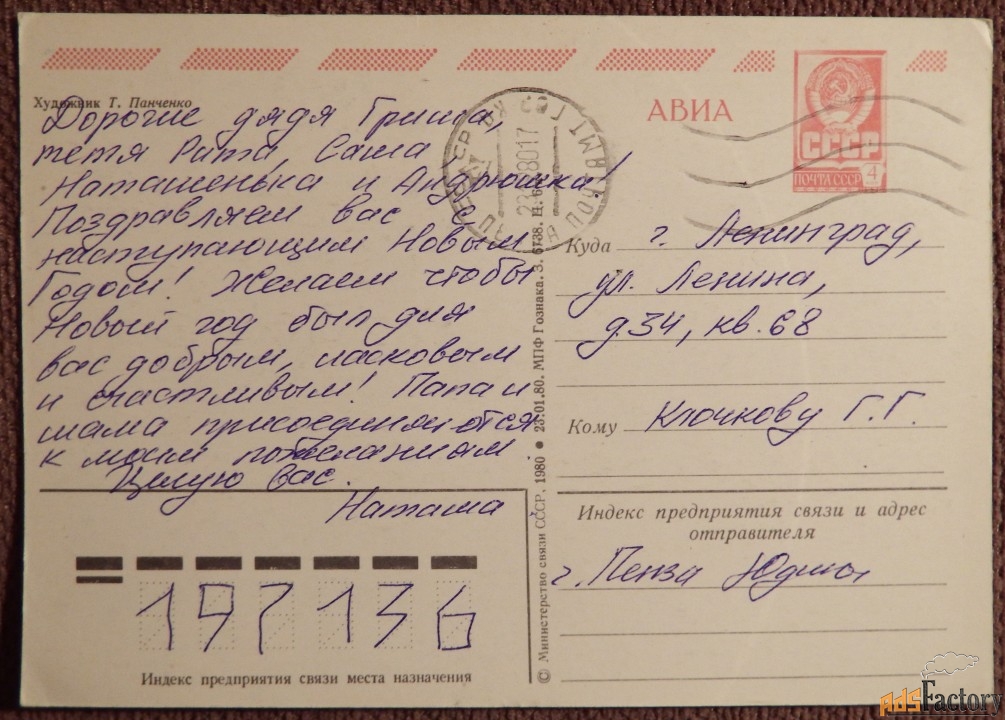 Художник Т. Панченко
Дорогие дядя Гриша,
тетя Рита, Саша
Наташенька и Андрюшка!
Поздравляем вас с
наступающим Новым
Годом! Желаем чтобы
Новый год был для
вас добрым, ласковым
и счастливым! Папа и
мама присоединяются
к моим пожеланиям
Целую Вас.
Наташа
197136
Индекс предприятия связи места назначения
© Министерство связи СССР, 1980 ● 23.01.80. МПФ Гознака. З. 6738. Ц.
АВИА
СССР
ПОЧТА СССР 4
Куда г. Ленинград,
ул. Ленина,
д.34, кв.68
Кому Клочкову Г.Г.
Индекс предприятия связи и адрес
отправителя
г. Пенза Юдины
AdsFactory